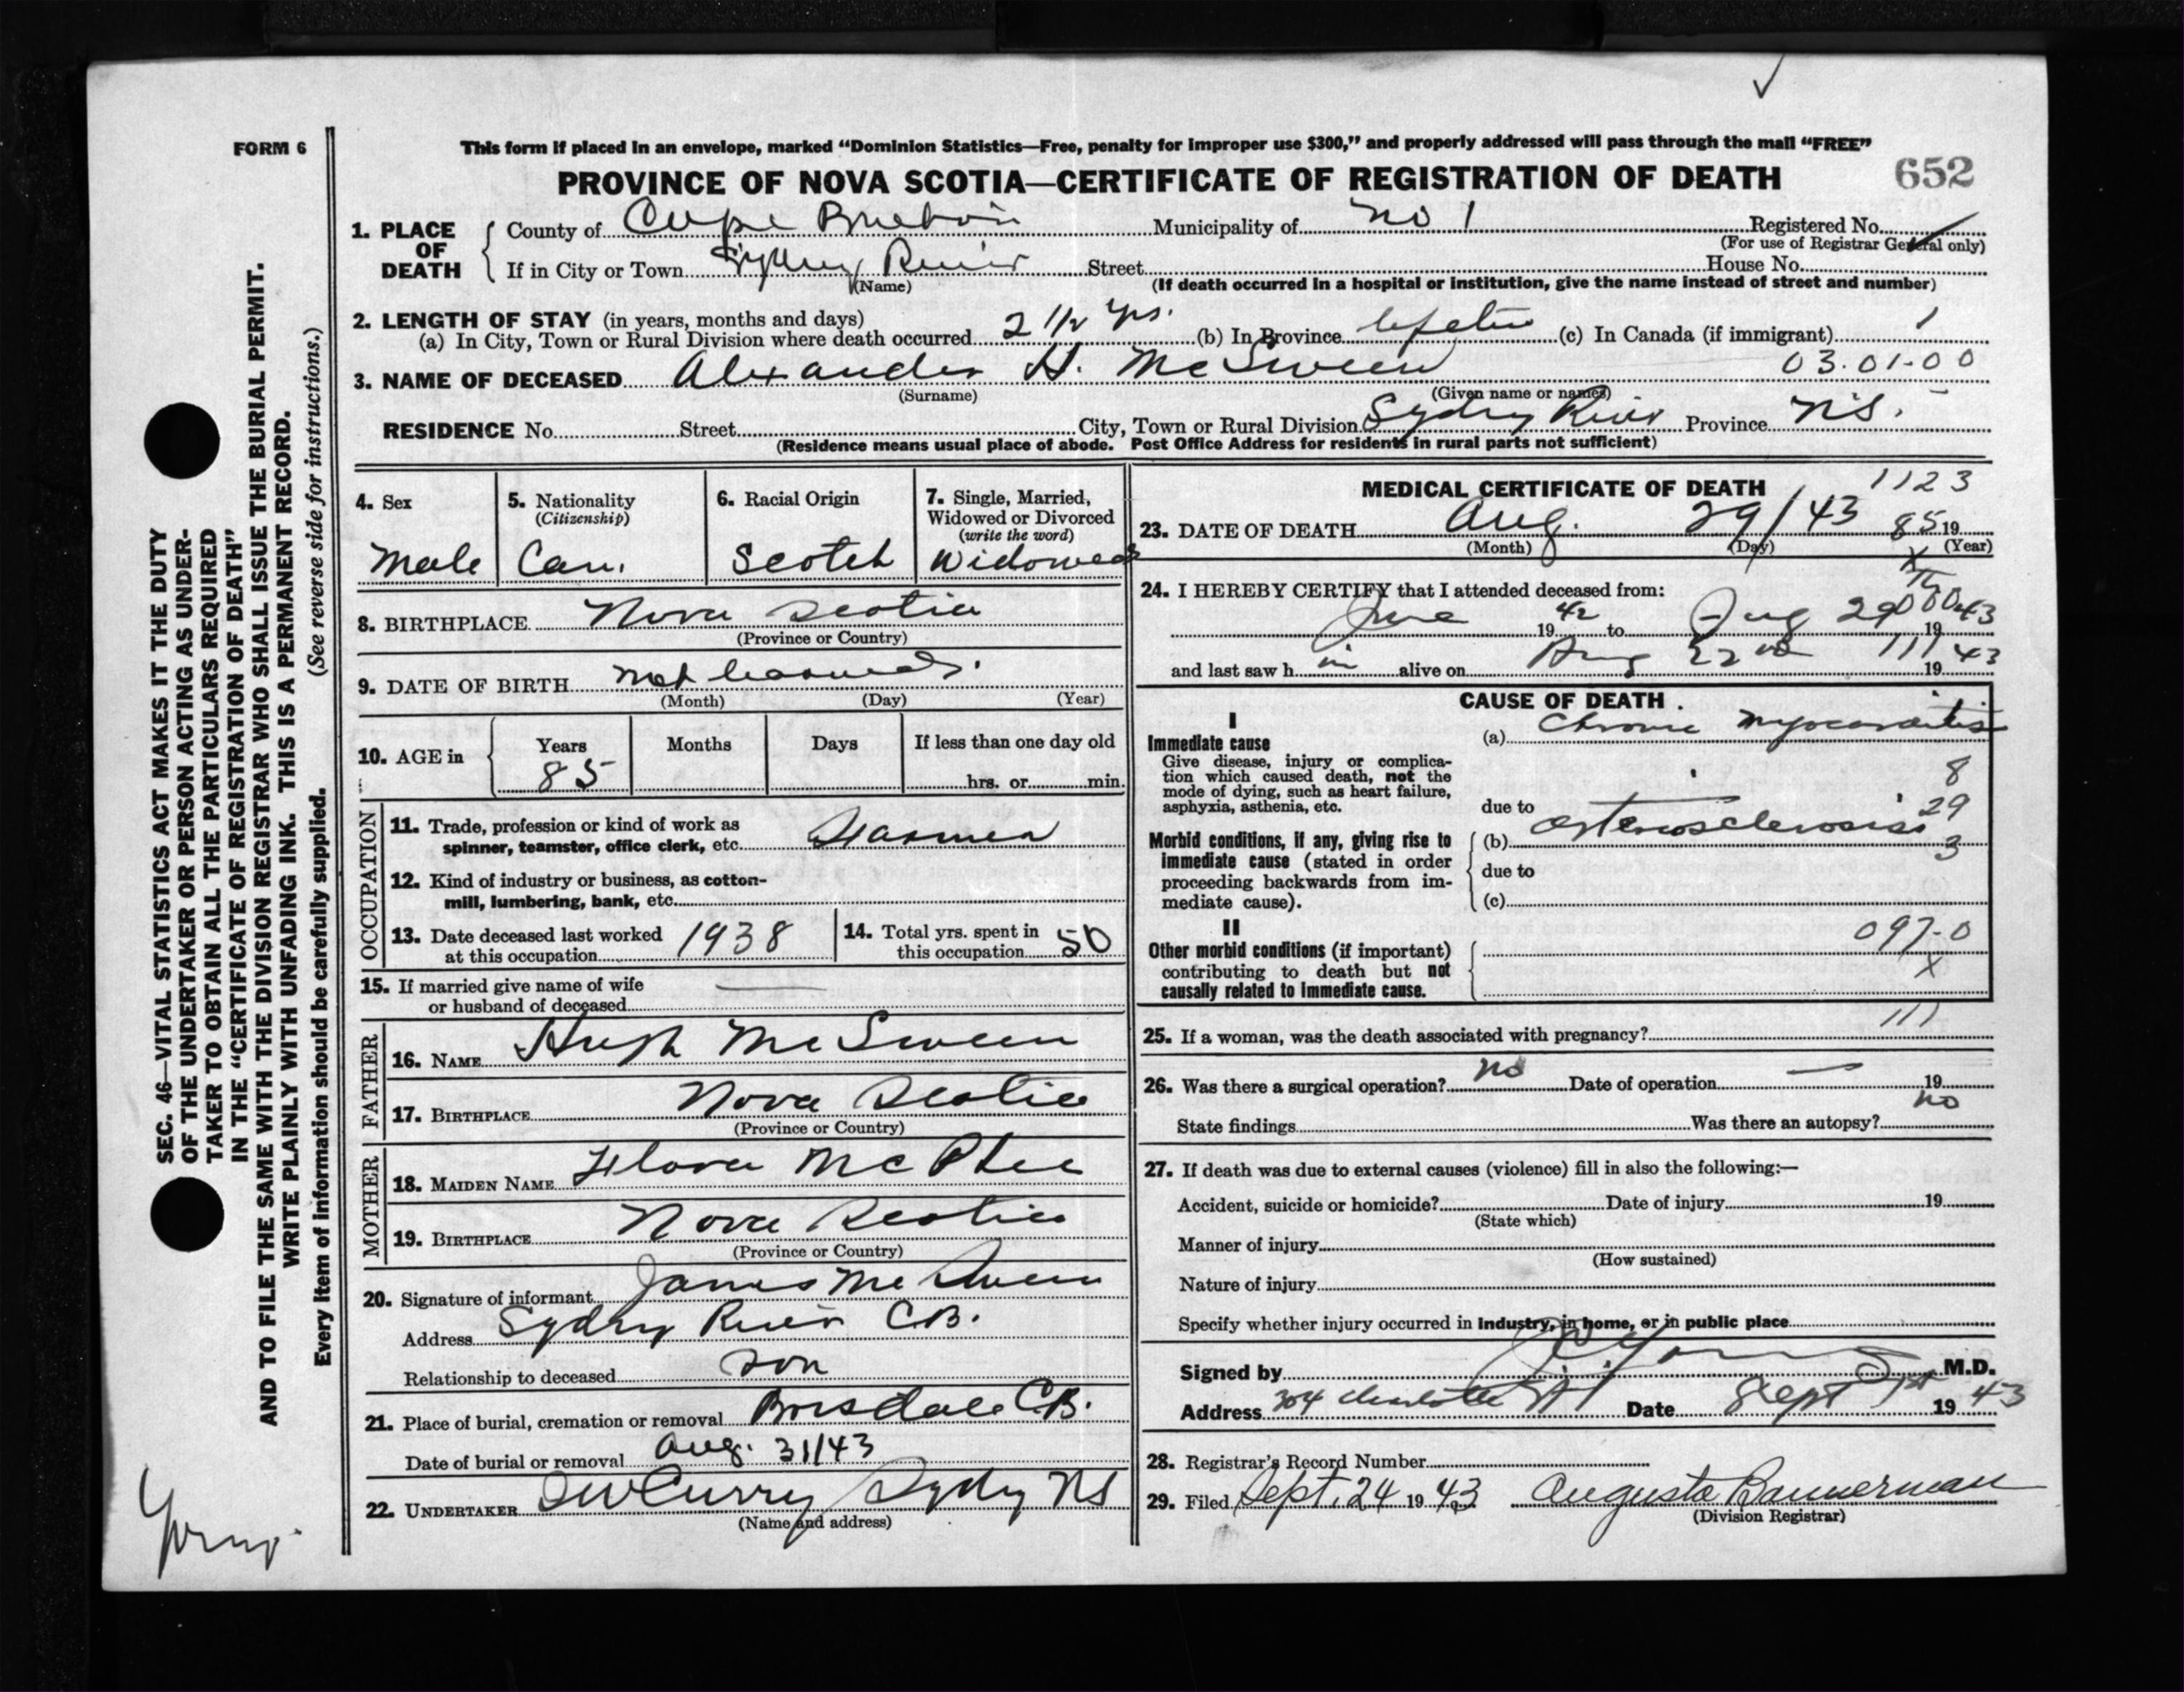 FORM 6
This form if placed in an envelope, marked “Dominion Statistics—Free, penalty for improper use $300,” and properly addressed will pass through the mail “FREE”
PROVINCE OF NOVA SCOTIA—CERTIFICATE OF REGISTRATION OF DEATH 652
1. PLACE OF DEATH
County of Cape Breton Municipality of No 1 Registered No.
(For use of Registrar General only)
If in City or Town Sydney River Street House No.
(Name) (If death occurred in a hospital or institution, give the name instead of street and number)
2. LENGTH OF STAY (in years, months and days)
(a) In City, Town or Rural Division where death occurred 2 1/2 yrs. (b) In Province lifetime (c) In Canada (if immigrant)
3. NAME OF DECEASED Alexander H. McSween 03.01-00
(Surname) (Given name or names)
RESIDENCE No. Street City, Town or Rural Division Sydney River Province N.S.
(Residence means usual place of abode. Post Office Address for residents in rural parts not sufficient)
4. Sex
Male
5. Nationality
(Citizenship)
Can.
6. Racial Origin
Scotch
7. Single, Married,
Widowed or Divorced
(write the word)
Widowed
8. BIRTHPLACE Nova Scotia
(Province or Country)
9. DATE OF BIRTH
(Month) (Day) (Year)
10. AGE in
Years Months Days If less than one day old
85 hrs. or min.
OCCUPATION
11. Trade, profession or kind of work as
spinner, teamster, office clerk, etc. Farmer
12. Kind of industry or business, as cotton-
mill, lumbering, bank, etc.
13. Date deceased last worked
at this occupation 1938
14. Total yrs. spent in
this occupation 50
15. If married give name of wife
or husband of deceased
FATHER
16. NAME Hugh McSween
17. BIRTHPLACE Nova Scotia
(Province or Country)
MOTHER
18. MAIDEN NAME Flora McPhee
19. BIRTHPLACE Nova Scotia
(Province or Country)
20. Signature of informant James McSween
Address Sydney River C.B.
Relationship to deceased son
21. Place of burial, cremation or removal Boisdale C.B.
Date of burial or removal Aug. 31/43
22. UNDERTAKER Curry Sydney NS
(Name and address)
MEDICAL CERTIFICATE OF DEATH 1123
23. DATE OF DEATH Aug. 29/43 85 19
(Month) (Day) (Year)
24. I HEREBY CERTIFY that I attended deceased from:
June 1942 to Aug 29 1943
and last saw h im alive on Aug 22nd 111 1943
CAUSE OF DEATH
I
Immediate cause
Give disease, injury or complica-
tion which caused death, not the
mode of dying, such as heart failure,
asphyxia, asthenia, etc.
(a) Chronic Myocarditis
8
due to
29
Morbid conditions, if any, giving rise to
immediate cause (stated in order
proceeding backwards from im-
mediate cause).
(b) arteriosclerosis
3
due to
(c)
II
097-0
Other morbid conditions (if important)
contributing to death but not
causally related to immediate cause.
X
25. If a woman, was the death associated with pregnancy? 111
26. Was there a surgical operation? no Date of operation — 19
State findings Was there an autopsy? no
27. If death was due to external causes (violence) fill in also the following:—
Accident, suicide or homicide? Date of injury 19
(State which)
Manner of injury
(How sustained)
Nature of injury
Specify whether injury occurred in industry, in home, or in public place
Signed by M.D.
Address 304 Charlotte St Date Sept 1st 1943
28. Registrar's Record Number
29. Filed Sept. 24 1943 Augusta Bannerman
(Division Registrar)
SEC. 46—VITAL STATISTICS ACT MAKES IT THE DUTY
OF THE UNDERTAKER OR PERSON ACTING AS UNDER-
TAKER TO OBTAIN ALL THE PARTICULARS REQUIRED
IN THE “CERTIFICATE OF REGISTRATION OF DEATH”
AND TO FILE THE SAME WITH THE DIVISION REGISTRAR WHO SHALL ISSUE THE BURIAL PERMIT.
WRITE PLAINLY WITH UNFADING INK. THIS IS A PERMANENT RECORD.
Every item of information should be carefully supplied. (See reverse side for instructions.)